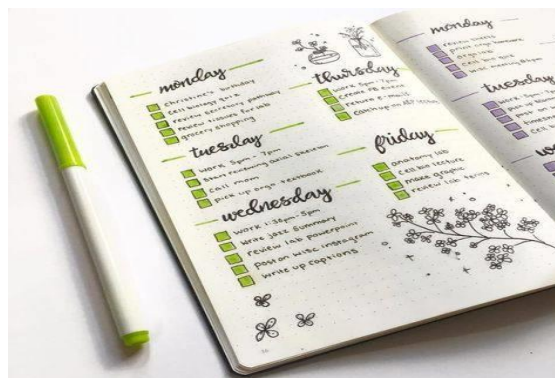 monday
christine's birthday
cell biology quiz
review secretory pathway
review tissues for lab
grocery shopping
tuesday
work 5pm - 7pm
start reviewing axial skeleton
call mom
pick up orgo textbook
wednesday
work 1:30pm - 5pm
write jazz summary
review lab powerpoint
post on witsc instagram
write up captions
thursday
work 5pm - 7pm
create FB event
return e-mails
catch up on
friday
anatomy lab
cell bio lecture
make graphic
review lab terms
monday
review sheets
print orgo
orgo lab
cell bio quiz
tuesday
work